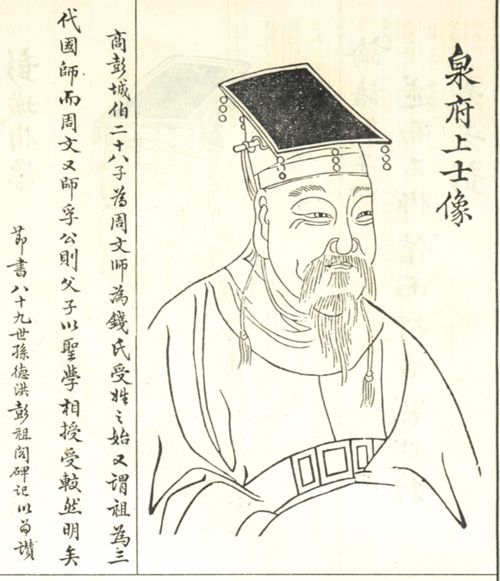 泉府上士像
商彭城伯二十八子為周文師為錢氏受姓之始又謂祖為三
代國師而周文又師孚公則父子以聖學相授受較然明矣
節書八十九世孫德洪彭祖閣碑記以當讚